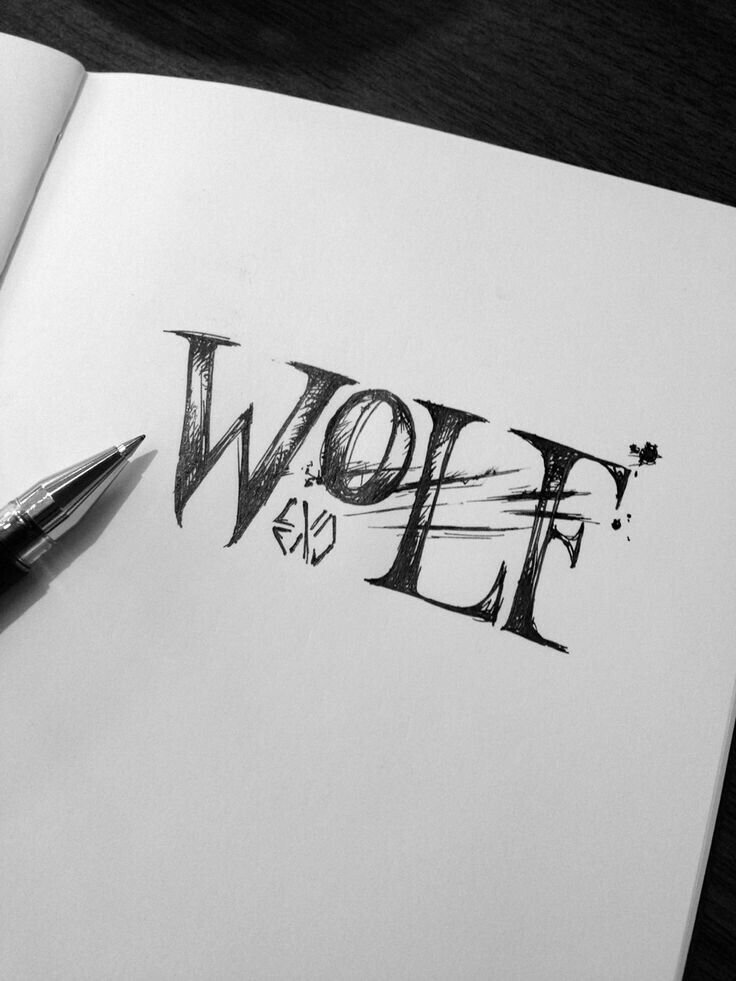 WOLF
EXO